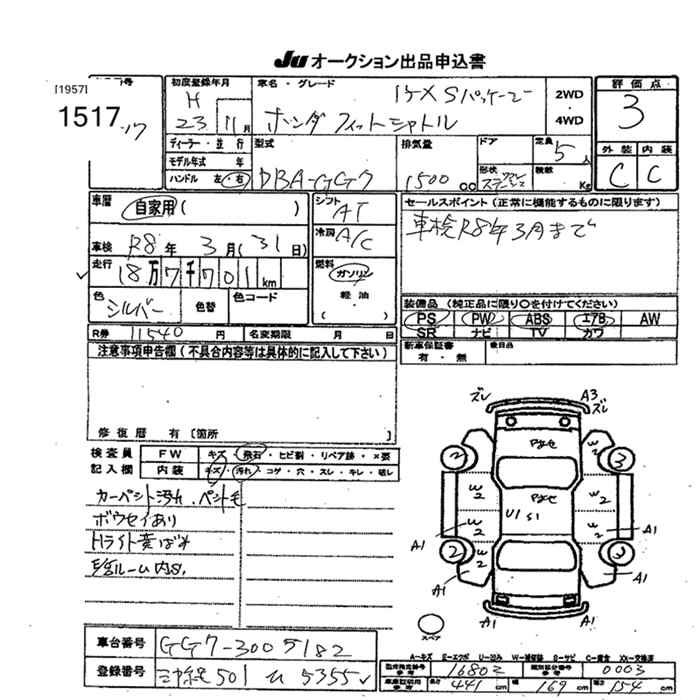 JU オークション出品申込書
[1957]
1517
初度登録年月
H
23 年 11 月
車名・グレード
ホンダ フィットシャトル
2WD
・
4WD
評価点
3
外装 内装
C C
ディーラー・並行
モデル年式 年
ハンドル 左・右
型式
DBA-GG7
排気量
1500 cc
ドア
形状
定員
5人
積数
Kg
車歴
自家用 ( )
車検 R8年 3月 (31日)
走行 18万7千701 km
色
シルバー
色替
色コード
シフト
AT
冷房
A/C
燃料
ガソリン
・
軽油
( )
セールスポイント (正常に機能するものに限ります)
車検R8年3月まで
装備品 (純正品に限り○を付けてください)
PS PW ABS エアB AW
SR ナビ TV カワ
新車保証書
有・無
後日品
R券 11540 円 名変期限 月 日
注意事項申告欄 (不具合内容等は具体的に記入して下さい)
修復歴 有 [箇所
検査員
記入欄
FW キズ・飛石・ヒビ割・リペア跡・×要
内装 キズ・汚れ・コゲ・穴・スレ・キレ・破レ
ボウセイあり
Hライト黄ばみ
ズレ
A3
ズレ
2
3
W2
W2
U1 S1
W2
W2
A1
A1
2
3
W2
W2
A1
A1
A1
スペア
車台番号 GG7-3005182
登録番号 501 5355
A-キズ E-エクボ U-凹み W-補修跡 S-サビ C-腐食 XX-交換済
型式指定番号
参考
16802
類別区分番号
参考
0003
車庫証明用
参考
長さ 441 cm 幅 169 cm 高さ 154 cm